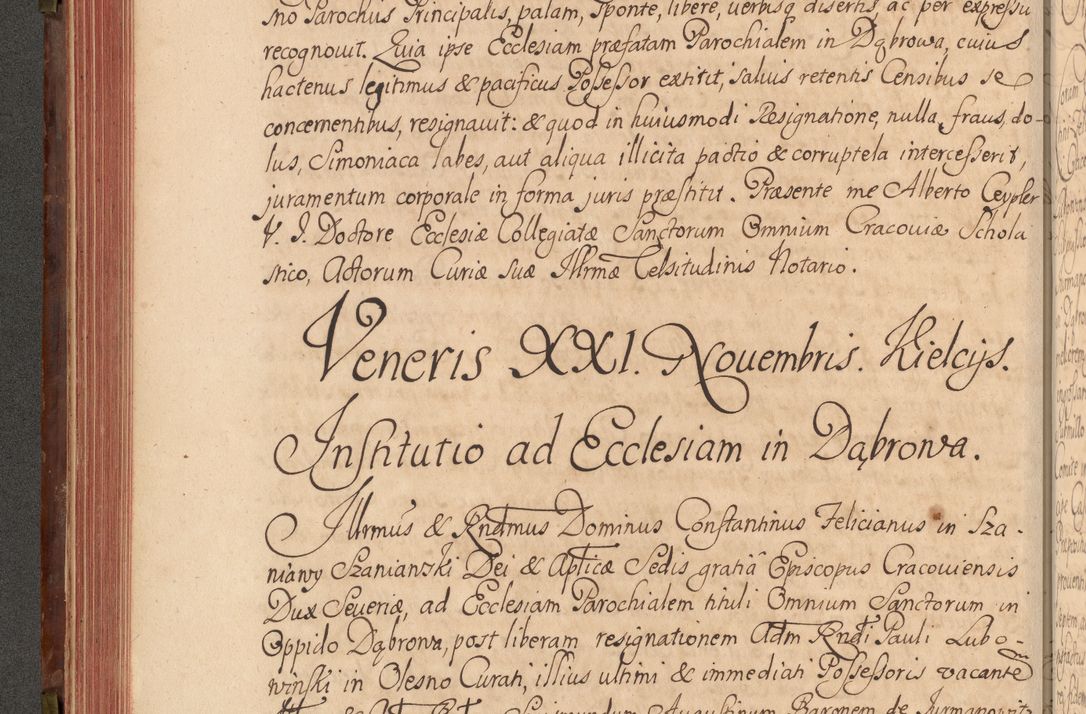 sno Parochus Principalis, palam, sponte, libere, verbisq disertis ac per expressu
recognouit. Quia ipse Ecclesiam præfatam Parochialem in Dąbrowa, cuius
hactenus legitimus & pacificus Possessor extitit, saluis retentis Censibus se
concernentibus, resignauit: & quod in huiusmodi Resignatione, nulla fraus, do-
lus, Simoniaca labes, aut aliqua illicita pactio & corruptela intercesserit,
juramentum corporale in forma juris præstitit. Præsente me Alberto Ceypler
V. J. Doctore Ecclesiæ Collegiatæ Sanctorum Omnium Cracouiæ Schola
stico, Actorum Curiæ suæ Illrmæ Celsitudinis Notario.
Veneris XXI. Nouembris. Kielcijs.
Institutio ad Ecclesiam in Dąbrowa.
Illrmus & Rndmus Dominus Constantinus Felicianus in Sza-
niawy Szaniawski Dei & Aplicæ Sedis gratiâ Episcopus Cracouiensis
Dux Seueriæ, ad Ecclesiam Parochialem tituli Omnium Sanctorum in
Oppido Dąbrowa, post liberam resignationem Adm Rndi Pauli Lubo-
wiński in Olesno Curati, illius ultimi & immediati Possessoris vacante
Augustinum Baronem de Jurmanowitz